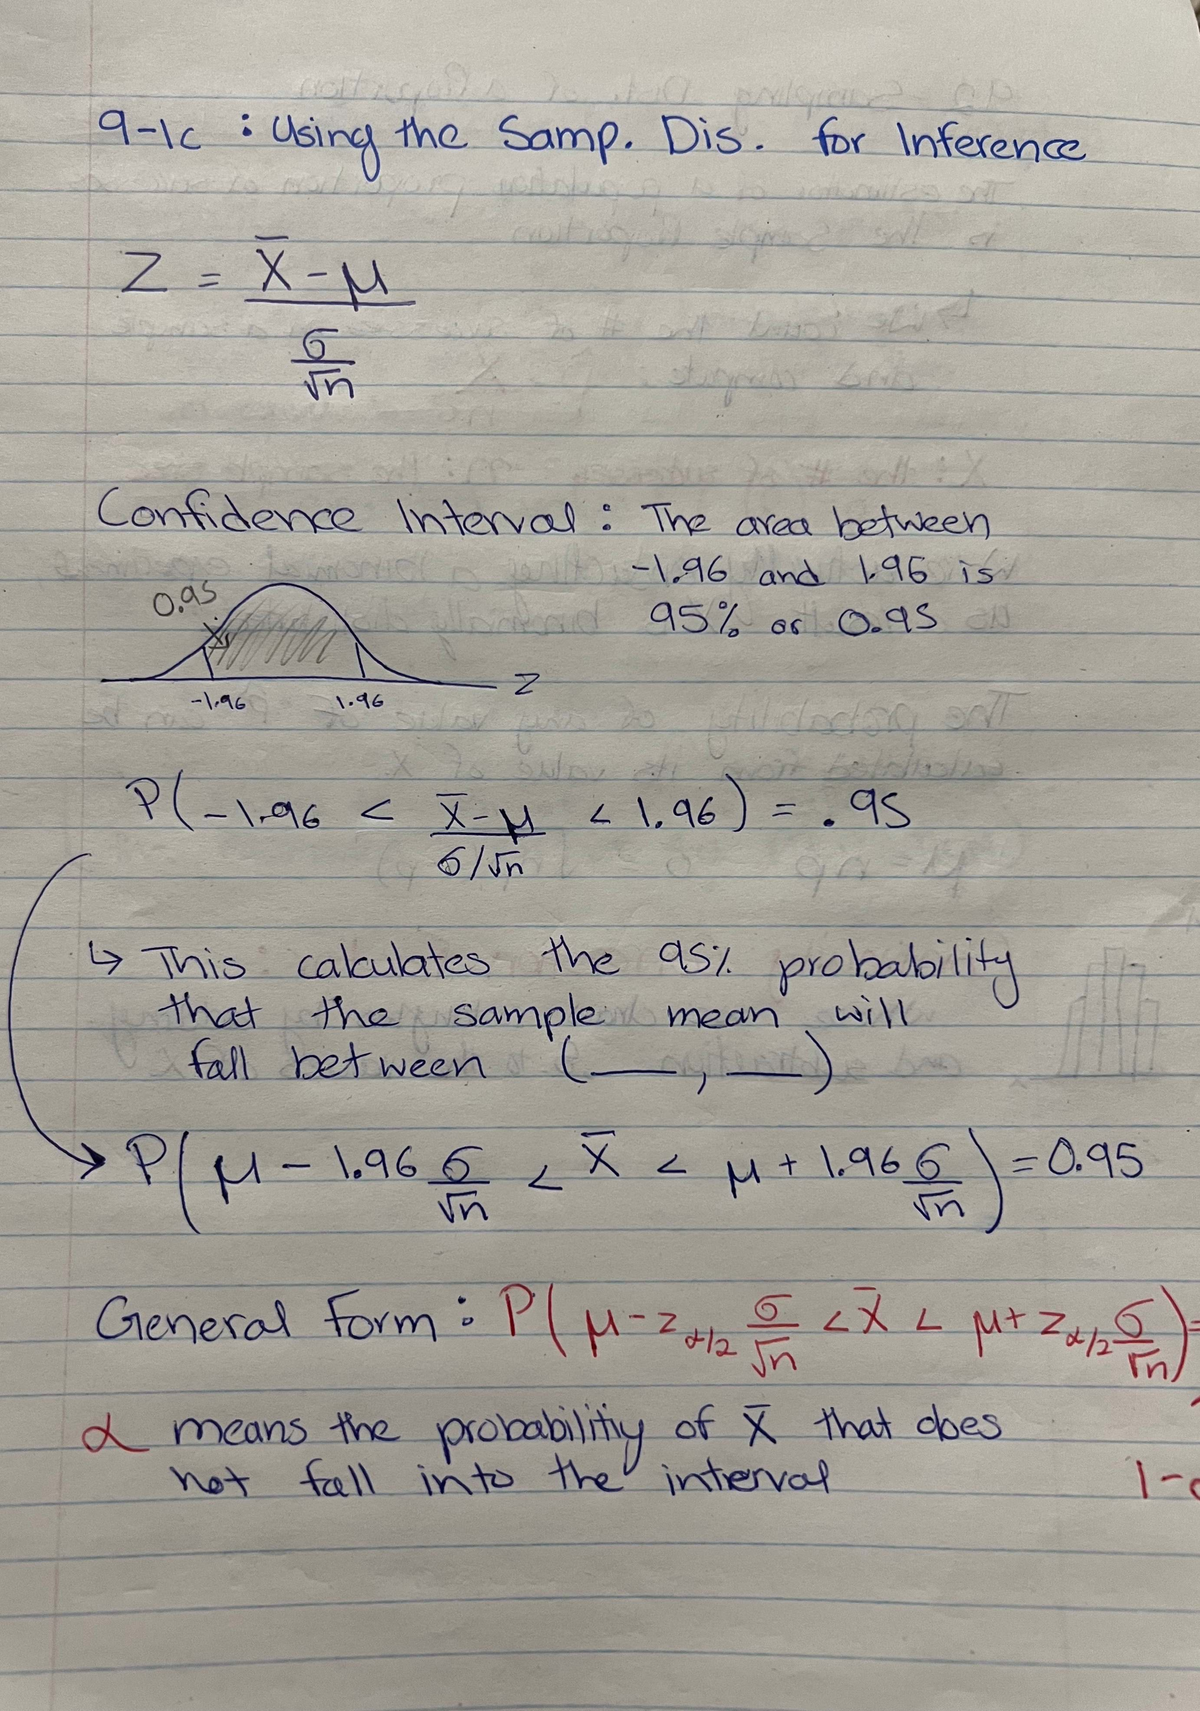 9-1c : Using the Samp. Dis. for Inference
Z = X̄ - μ
σ
√n
Confidence Interval : The area between
-1.96 and 1.96 is
95% or 0.95
0.95
-1.96 1.96 Z
P( -1.96 < X̄ - μ < 1.96 ) = .95
σ/√n
↳ This calculates the 95% probability
that the sample mean will
fall between ( ___ , ___ )
→ P( μ - 1.96 σ/√n < X̄ < μ + 1.96 σ/√n ) = 0.95
General Form : P( μ - z α/2 σ/√n < X̄ < μ + z α/2 σ/√n ) =
α means the probabilitiy of X̄ that does
not fall into the interval
1-